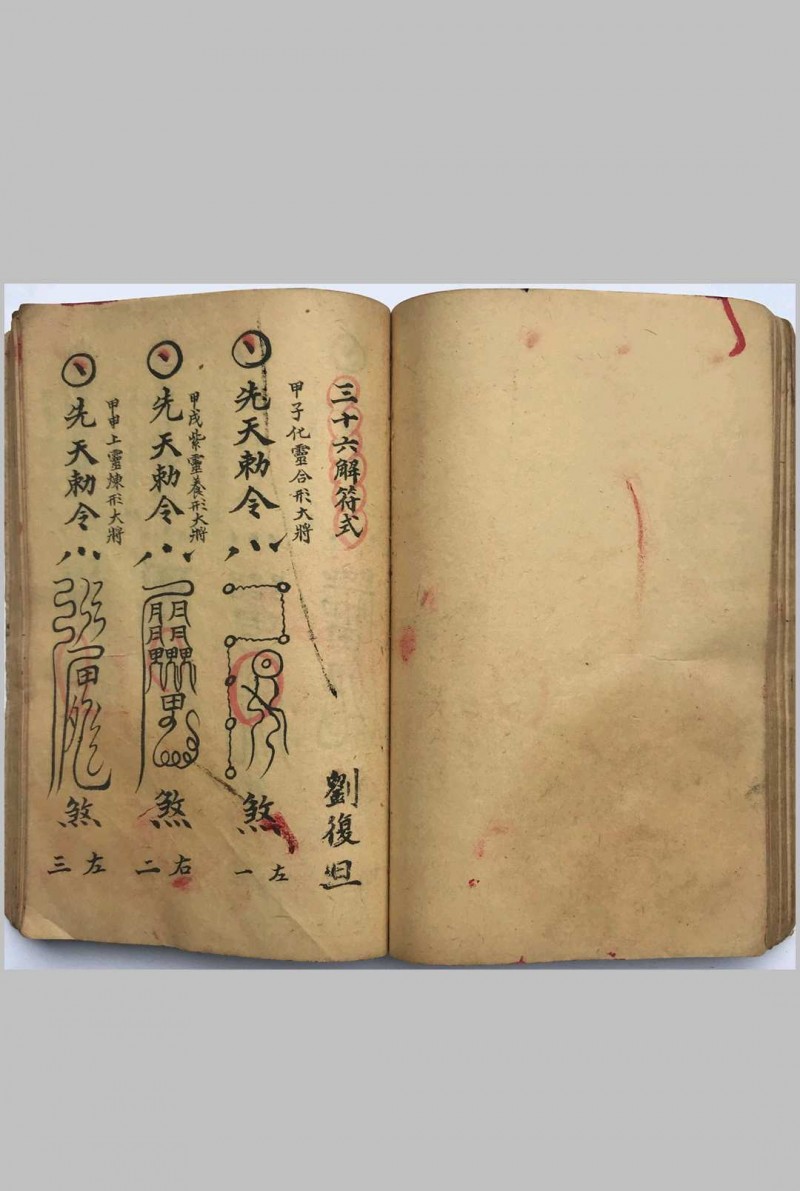 三十六解符式
劉復旦
甲子化靈合形大將
先天勅令
煞
左一
甲戌紫靈養形大將
先天勅令
煞
右二
甲申上靈煉形大將
先天勅令
煞
左三